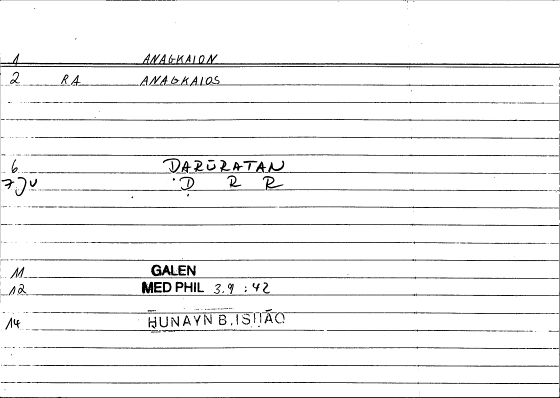 1 ANAGKAION
2 RA ANAGKAIOS
6 DARŪRATAN
7 JU D R R
11 GALEN
12 MED PHIL 3.9 : 42
14 HUNAYN B. ISHĀQ